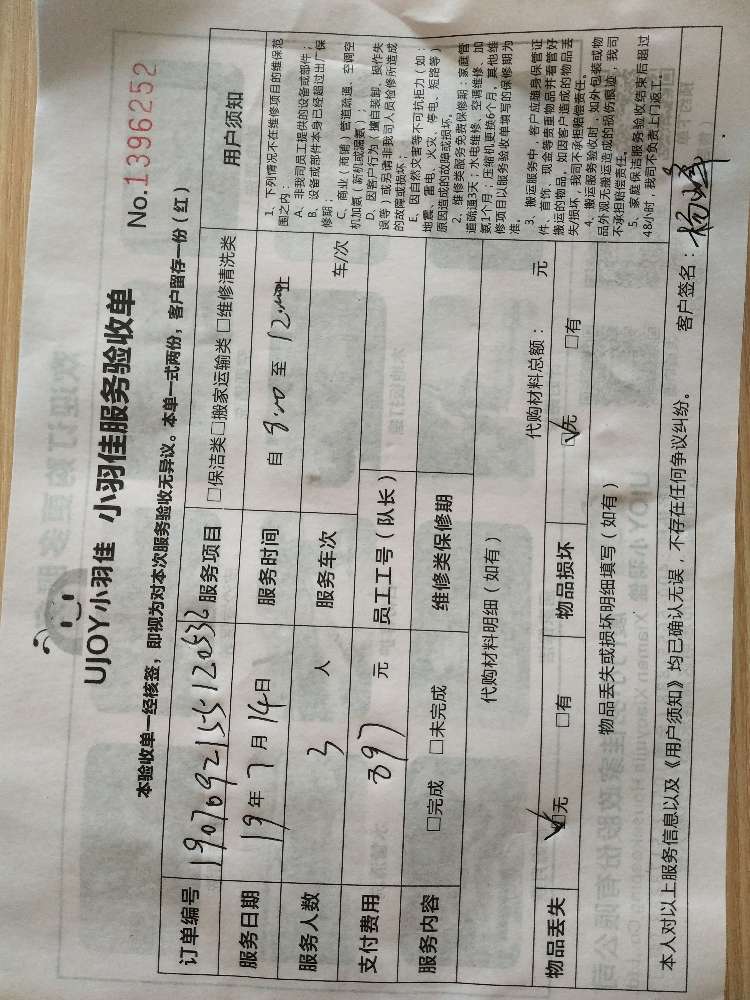 UJOY小羽佳 小羽佳服务验收单
No.1396252
本验收单一经核签，即视为对本次服务验收无异议。本单一式两份，客户留存一份（红）
订单编号 190709215512053 服务项目 □保洁类□搬家运输类 □维修清洗类
服务日期 19年7月14日 服务时间 自 9:00 至 12:00止
服务人数 3 人 服务车次 车/次
支付费用 397 元 员工工号（队长）
服务内容 □完成 □未完成 维修类保修期
代购材料明细（如有） 代购材料总额： 元
物品丢失 ☑无 □有 物品损坏 ☑无 □有
物品丢失或损坏明细填写（如有）
用户须知
1、下列情况不在维修项目的维保范
围之内：
A、非我司员工提供的设备或部件；
B、设备或部件本身已经超过出厂保
修期；
C、商业（商铺）管道疏通、空调空
机加氨（新机或漏氨）；
D、因客户行为（擅自装卸、操作失
误等）或另请非我司人员检修所造成
的故障或损坏；
E、因自然灾害等不可抗拒力（如：
地震、雷电、火灾、停电、短路等）
原因造成的故障或损坏。
2、维修类服务免费保修期：家庭管
道疏通3天；水电维修、空调维修、加
氨1个月；压缩机更换6个月，其他维
修项目以服务验收单填写的保修期为
准。
3、搬运服务中，客户应随身保管证
件、首饰、现金等贵重物品并看管好
搬运的物品，如因客户造成的物品丢
失/损坏，我司不承担赔偿责任。
4、搬运服务验收时，如外包装或物
品外观无搬运造成的损伤痕迹，我司
不承担赔偿责任。
5、家庭保洁服务验收结束后超过
48小时，我司不负责上门返工。
本人对以上服务信息以及《用户须知》均已确认无误，不存在任何争议纠纷。 客户签名：杨峰